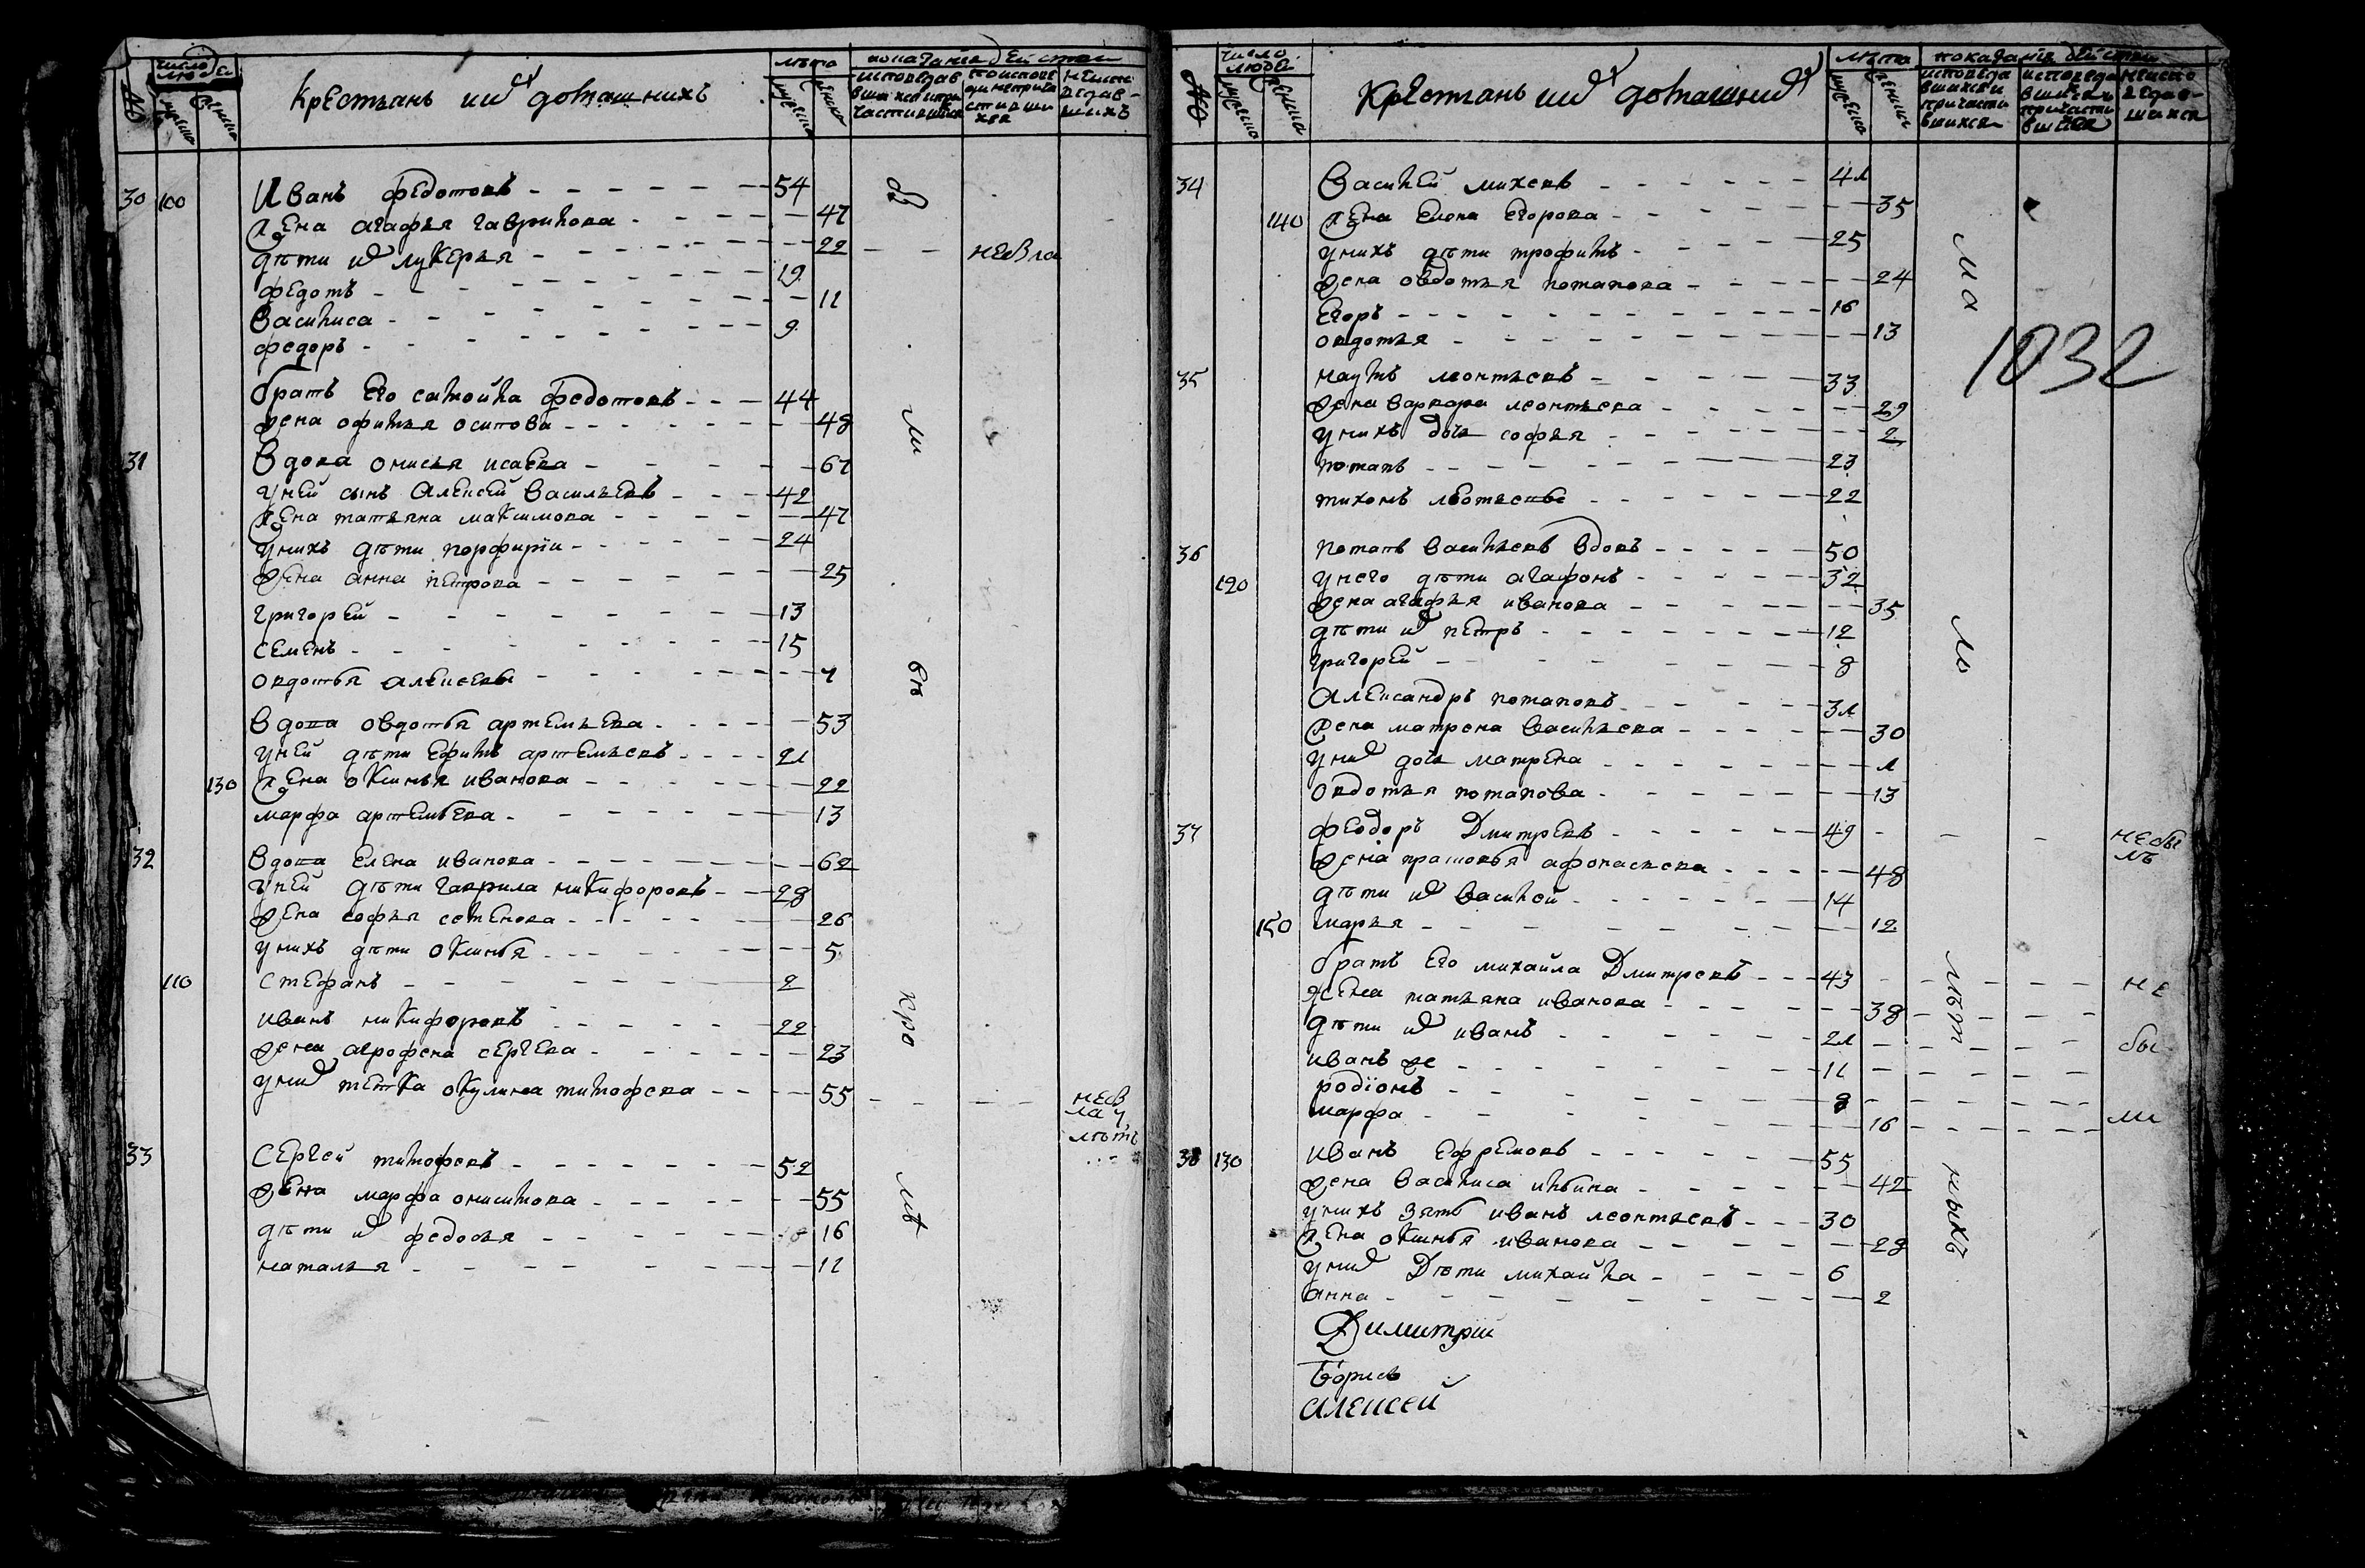 число людей
лѣта
показанїе дѣйствъ
№ мужеска женска
крестьянъ и их домашнихъ
мужеска женска
исповѣдав
шихся и при
частившихся
30 100 Иванъ федотовъ 54
жена агафья гаврилова 47
дѣти их лукерья 22 небыла
федотъ 19
Василиса 11
федоръ 9
братъ его самойла федотовъ 44
жена офимья осипова 48
31 Вдова онисья исаева 67
уней сынъ Алексей васильевъ 42
жена татьяна максимова 47
унихъ дѣти порфирїи 24
жена анна петрова 25
григорей 13
семенъ 15
овдотья алексеева 7
вдова овдотья артемьева 53
уней дѣти ефимъ артемьевъ 21
130 жена окинья иванова 22
марфа артемьева 13
32 вдова елена иванова 62
уней дѣти гаврила никифоровъ 28
жена софья семенова 26
унихъ дѣти окинья 5
110 стефанъ 2
иванъ никифоровъ 22
жена агрофена сергеева 23
уних тетка окулина тимофеева 55 небы
ла у
лѣтъ
33 Сергей тимофеевъ 52
жена марфа онисимова 55
дѣти их федосья 16
наталья 11
число
людей
лѣта
показанїя дѣйствъ
№ мужеска женска
крестьянъ и их домашних
мужеска женска
исповеда
вшихся и
причасти
вшихся
неиспо
ведав
шихся
34 Василей михеевъ 41
140 жена елена егорова 35
унихъ дѣти трофимъ 25
жена овдотья потапова 24
егоръ 16
овдотья 13
1032
35 наумъ леонтьевъ 33
жена варвара леонтьева 29
унихъ дочь софья 2
потапъ 23
тихонъ леонтьевы 22
36 потапъ васильевъ вдовъ 50
120 унего дѣти агафонъ 32
жена агафья иванова 35
дѣти их петръ 12
григорей 8
Александръ потаповъ 31
жена матрена васильева 30
уних дочь матрена 1
овдотья потапова 13
37 феодоръ Дмитревъ 49 небы
лъ
жена прасковья афонасьева 48
дѣти их василей 14
150 марья 12
братъ его михайла Дмитревъ 43 не
жена татьяна иванова 38
дѣти их иванъ 21 бы
иванъ же 11
родїонъ 8
марфа 16 ли
38 130 иванъ ефремовъ 55
жена василиса ильина 42
унихъ зять иванъ леонтьевъ 30
жена окинья иванова 28
уних Дѣти михайла 6
анна 2
Димитрїи
Борисъ
алексей